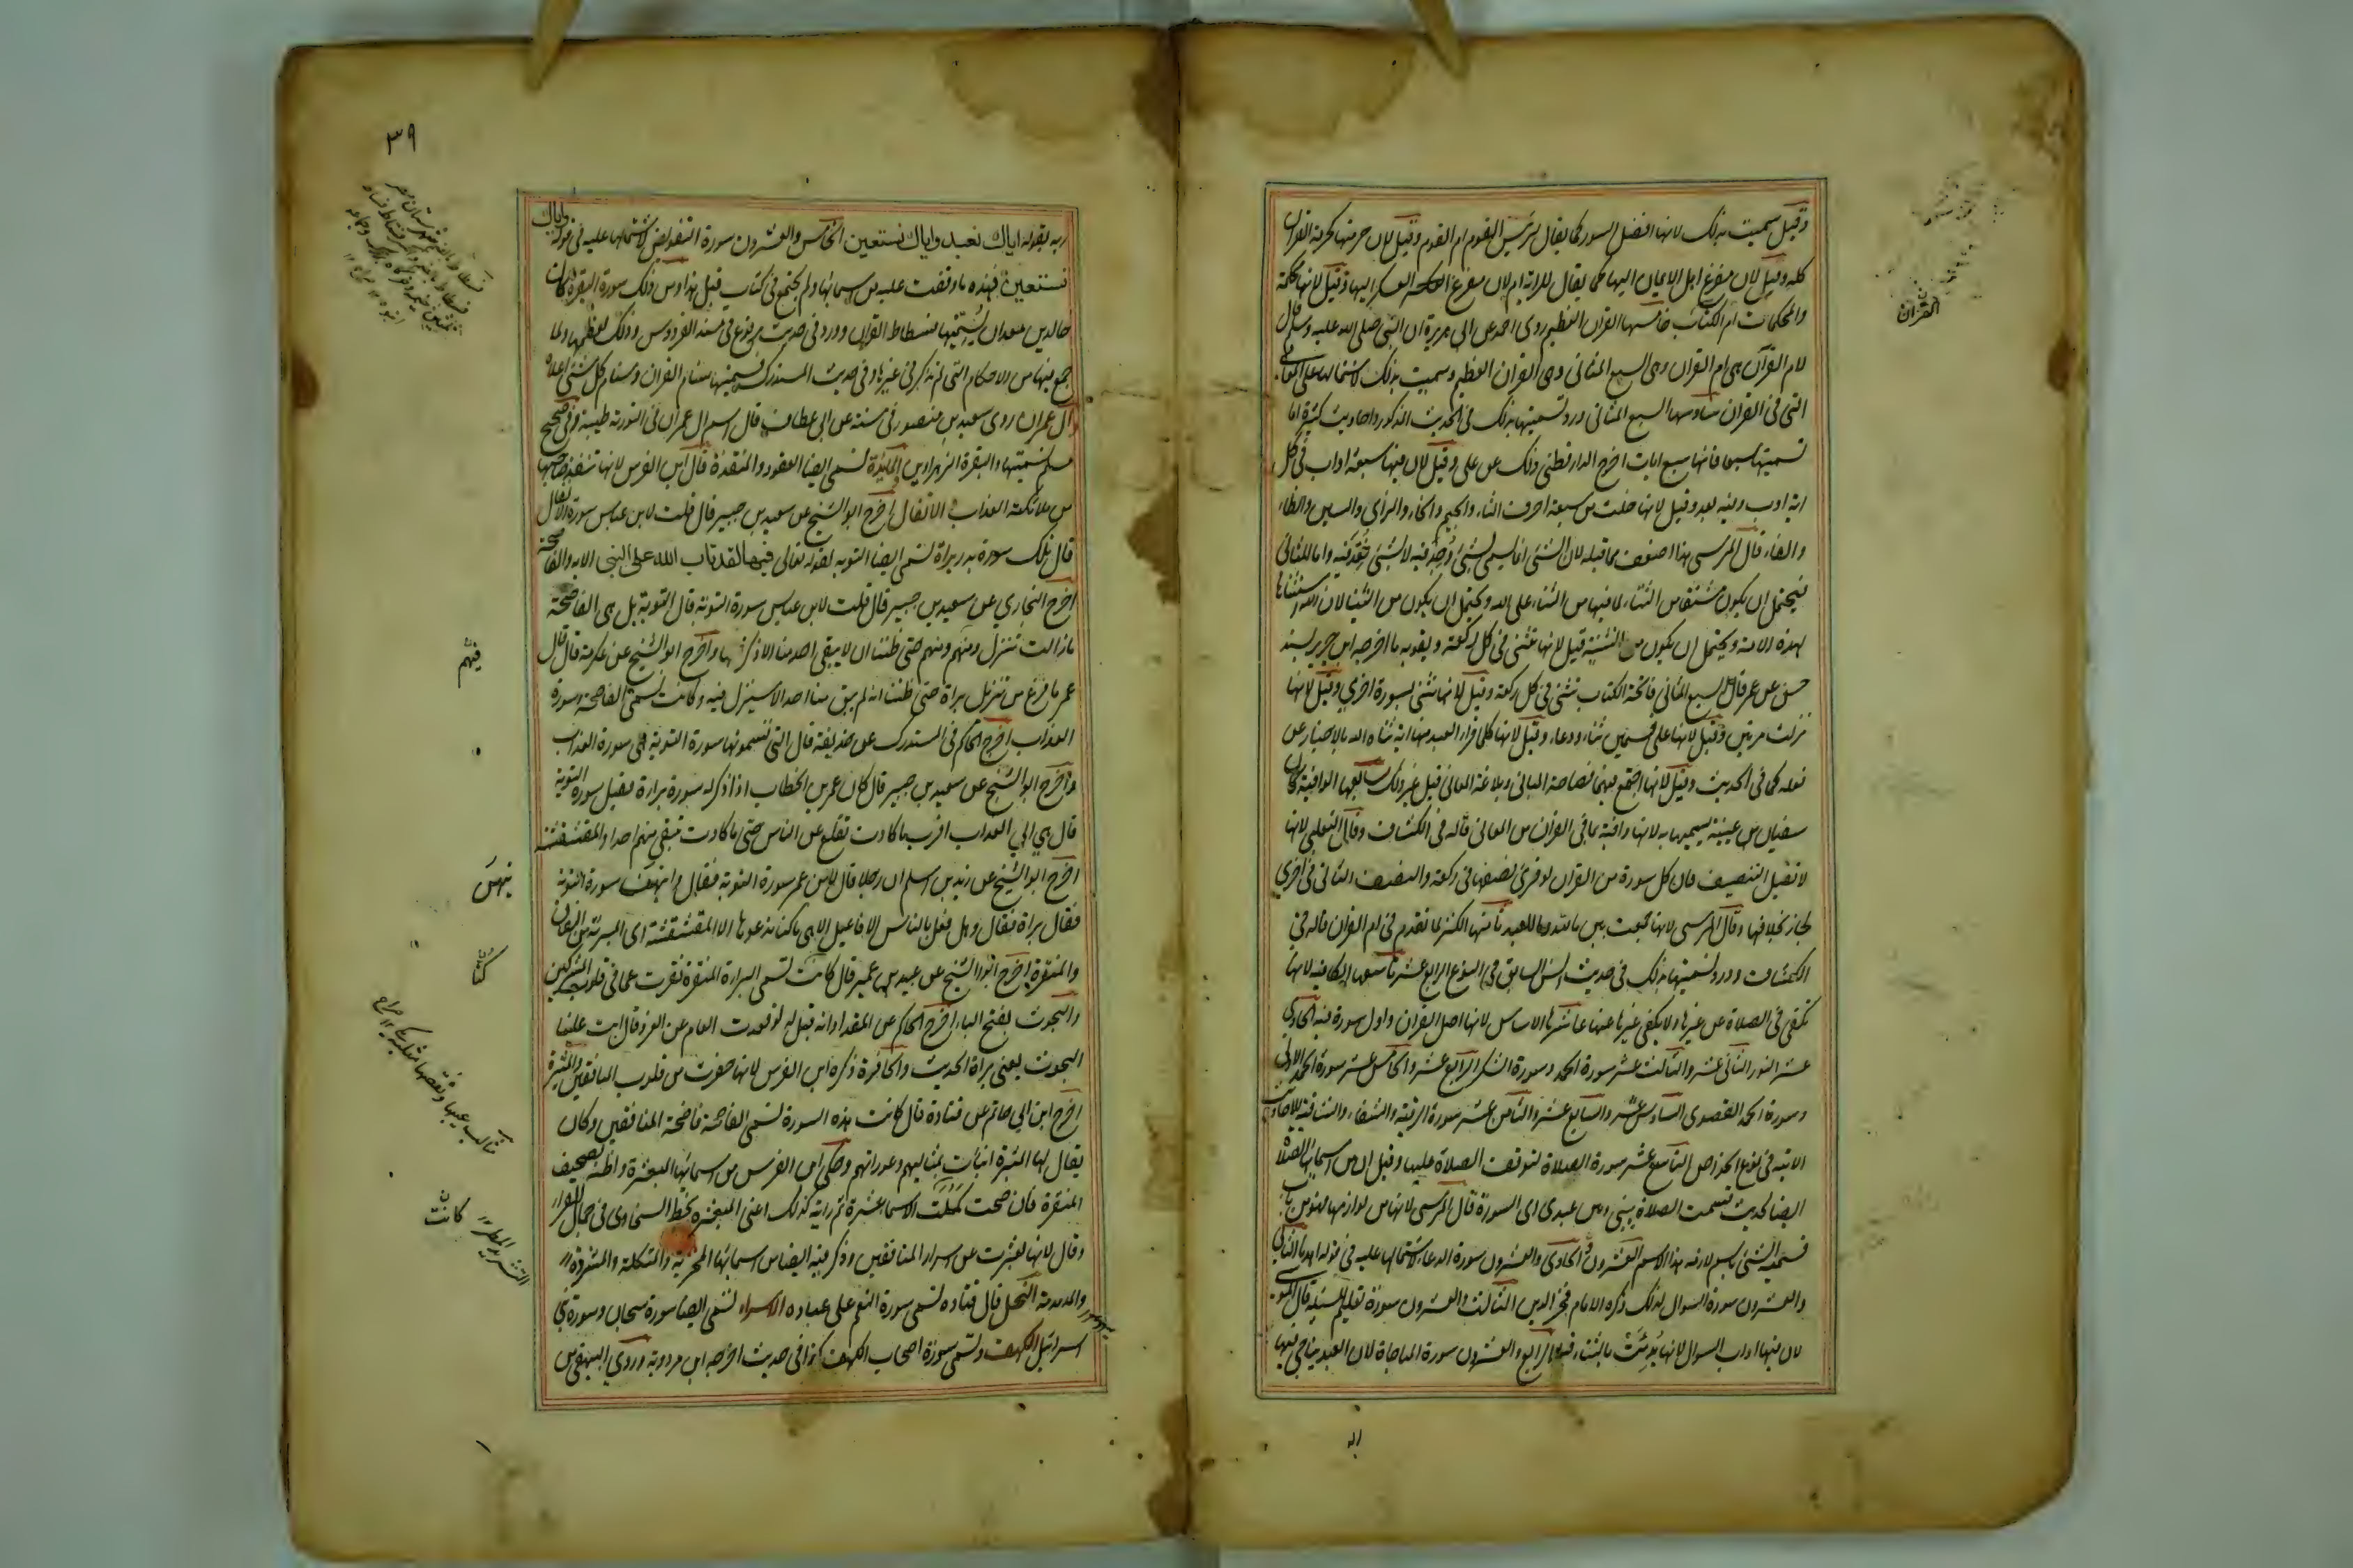 وقيل سميت بذلك لانها افضل السور كما يقال لرئيس القوم ام القوم وقيل لان حرمتها كحرمة القران
كله وقيل لان مفزع اهل الايمان اليها كما يقال للراية ام لان مفزع العسكر اليها وقيل لانها محكمة
والمحكمات ام الكتاب خامسها القران العظيم روى احمد عن ابى هريرة ان النبى صلى الله عليه وسلم قال
لام القرآن هى ام القران وهى السبع المثانى وهى القران العظيم وسميت بذلك لاشتمالها على المعانى
التى فى القران سادسها السبع المثانى ورد تسميتها بذلك فى الحديث المذكور واحاديث كثيرة اما
تسميتها سبعا فلانها سبع ايات اخرج الدارقطنى ذلك عن على وقيل لان فيها سبعة اداب فى كل
اية ادب وفيه بعد وقيل لانها خلت من سبعة احرف الثاء والجيم والخاء والزاى والشين والظاء
والفاء قال المرسى هذا اضعف مما قبله لان الشئ انما يسمى بشئ وجد فيه لا بشئ فقد منه واما المثانى
فيحتمل ان يكون مشتقا من الثناء لما فيها من الثناء على الله ويحتمل ان يكون من الثنيا لان الله استثناها
لهذه الامة ويحتمل ان يكون من التثنية قيل لانها تثنى فى كل ركعة ويقويه ما اخرجه ابن جرير بسند
حسن عن عمر قال السبع المثانى فاتحة الكتاب تثنى فى كل ركعة وقيل لانها تثنى بسورة اخرى وقيل لانها
نزلت مرتين وقيل لانها على قسمين ثناء ودعاء وقيل لانها كلما قرا العبد منها اية ثناه الله بالاخبار عن
فعله كما فى الحديث وقيل لانها اجتمع فيها فصاحة المبانى وبلاغة المعانى وقيل غير ذلك سابعها الوافية كان
سفيان بن عيينة يسميها به لانها وافية بما فى القران من المعانى قاله فى الكشاف وقال الثعلبى لانها
لا تقبل التنصيف فان كل سورة من القران لو قرئ نصفها فى ركعة والنصف الثانى فى اخرى
لجاز بخلافها وقال المرسى لانها جمعت بين ما لله وما للعبد ثامنها الكنز لما تقدم فى ام القران قاله فى
الكشاف وورد تسميتها بذلك فى حديث انس السابق فى النوع الرابع عشر تاسعها الكافية لانها
تكفى فى الصلاة عن غيرها ولا يكفى غيرها عنها عاشرها الاساس لانها اصل القران واول سورة فيه الحادى
عشر النور الثانى عشر والثالث عشر سورة الحمد وسورة الشكر الرابع عشر والخامس عشر سورة الحمد الاولى
وسورة الحمد القصوى السادس عشر والسابع عشر والثامن عشر سورة الرقية والشفاء والشافية للاحاديث
الاتية فى نوع الخواص التاسع عشر سورة الصلاة لتوقف الصلاة عليها وقيل ان من اسمائها الصلاة
ايضا لحديث قسمت الصلاة بينى وبين عبدى اى السورة قال المرسى لانها من لوازمها فهو من باب
تسمية الشئ باسم لازمه هذا الاسم العشرون والحادى والعشرون سورة الدعاء لاشتمالها عليه فى قوله اهدنا الثانى
والعشرون سورة السوال لذلك ذكره الامام فخر الدين الثالث والعشرون سورة تعليم المسئلة قال المرسى
لان فيها اداب السوال لانها بدئت بالثناء قبله الرابع والعشرون سورة المناجاة لان العبد يناجى فيها
القران
٣٩
ربه بقوله اياك نعبد واياك نستعين الخامس والعشرون سورة التفويض لاشتمالها عليه فى قوله واياك
نستعين فهذه ما وقفت عليه من اسمائها ولم تجتمع فى كتاب قبل هذا ومن ذلك سورة البقرة كان
خالد بن معدان يسميها فسطاط القران وورد فى حديث مرفوع فى مسند الفردوس وذلك لعظمها ولما
جمع فيها من الاحكام التى لم تذكر فى غيرها وفى حديث المستدرك تسميتها سنام القران وسنام كل شئ اعلاه
وال عمران روى سعيد بن منصور فى سننه عن ابى عطاف قال اسم ال عمران فى التورية طيبة وفى صحيح
مسلم تسميتها والبقرة الزهراوين المايدة تسمى ايضا العقود والمنقذة قال ابن الفرس لانها تنقذ صاحبها
من ملائكة العذاب الانفال اخرج ابو الشيخ عن سعيد بن جبير قال قلت لابن عباس سورة الانفال
قال تلك سورة بدر براة تسمى ايضا التوبة لقوله تعالى فيها لقد تاب الله على النبى الاية والفاضحة
اخرج البخارى عن سعيد بن جبير قال قلت لابن عباس سورة التوبة قال التوبة بل هى الفاضحة
ما زالت تنزل ومنهم ومنهم حتى ظننا ان لا يبقى احد منا الا ذكر فيها واخرج ابو الشيخ عن عكرمة قال قال
عمر ما فرغ من تنزيل براة حتى ظننا انه لم يبق منا احد الا سينزل فيه وكانت تسمى الفاضحة وسورة
العذاب اخرج الحاكم فى المستدرك عن حذيفة قال التى تسمونها سورة التوبة هى سورة العذاب
واخرج ابو الشيخ عن سعيد بن جبير قال كان عمر بن الخطاب اذا ذكر له سورة براءة فقيل سورة التوبة
قال هى الى العذاب اقرب ما كادت تقلع عن الناس حتى ما كادت تبقى منهم احدا والمقشقشة
اخرج ابو الشيخ عن زيد بن اسلم ان رجلا قال لابن عمر سورة التوبة فقال وايتهن سورة التوبة
فقال براة فقال وهل فعل بالناس الافاعيل الا هى ما كنا ندعوها الا المقشقشة اى المبرئة من النفاق
والمنقرة اخرج ابو الشيخ عن عبيد بن عمير قال كانت تسمى البراءة المنقرة نقرت عما فى قلوب المشركين
والبحوث بفتح الباء اخرج الحاكم عن المقداد انه قيل له لو قعدت العام عن الغزو قال ابت علينا
البحوث يعنى براة الحديث والحافرة ذكره ابن الفرس لانها حفرت عن قلوب المنافقين والمثيرة
اخرج ابن ابى حاتم عن قتادة قال كانت هذه السورة تسمى الفاضحة فاضحة المنافقين وكان
يقال لها المثيرة انبات بمثالبهم وعوراتهم وحكى ابن الفرس من اسمائها المبعثرة واظنه تصحيف
المنقرة فان صحت كملت الاسما عشرة ثم رايته كذلك اعنى المبعثرة بخط السخاوى فى جمال القراء
وقال لانها بعثرت عن اسرار المنافقين وذكر فيه ايضا من اسمائها المخزية والمنكلة والمشردة
والمدمدمة النحل قال قتادة تسمى سورة النعم على عباده الاسراء تسمى ايضا سورة سبحان وسورة بنى
اسرائيل الكهف وتسمى سورة اصحاب الكهف كذا فى حديث اخرجه ابن مردويه وروى البيهقى من
كنا
كانت